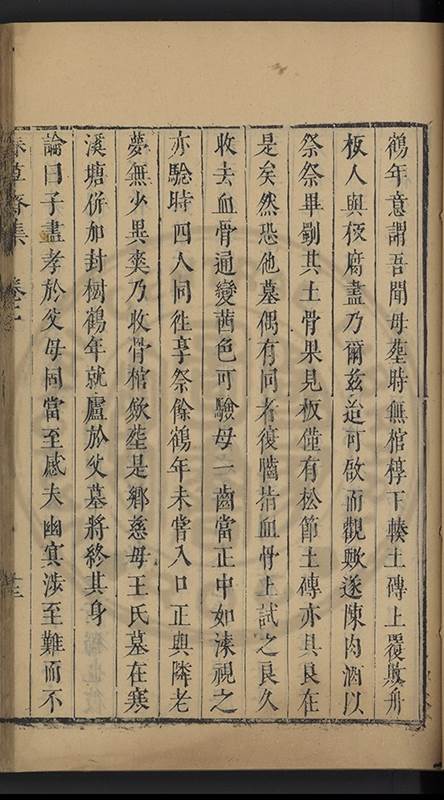 鶴年意謂吾聞母塟時無棺椁下輳土磚上覆敗舟
板人與板腐盡乃爾茲豈可啟而觀歟遂陳肉酒以
祭祭畢劚其土骨果見板僅有松節土磚亦具良在
是矣然恐他墓偶有同者復嚙指血骨上試之良久
收去血骨通變茜色可驗母一齒當正中如漆視之
亦騐時四人同徃享祭餘鶴年未嘗入口正與隣老
夢無少異爽乃收骨棺斂塟是鄉慈母王氏墓在寒
溪塘併加封樹鶴年就廬於父墓將終其身
論曰子盡孝於父母固當至感夫幽冥渉至難而不
春草齋集 卷七